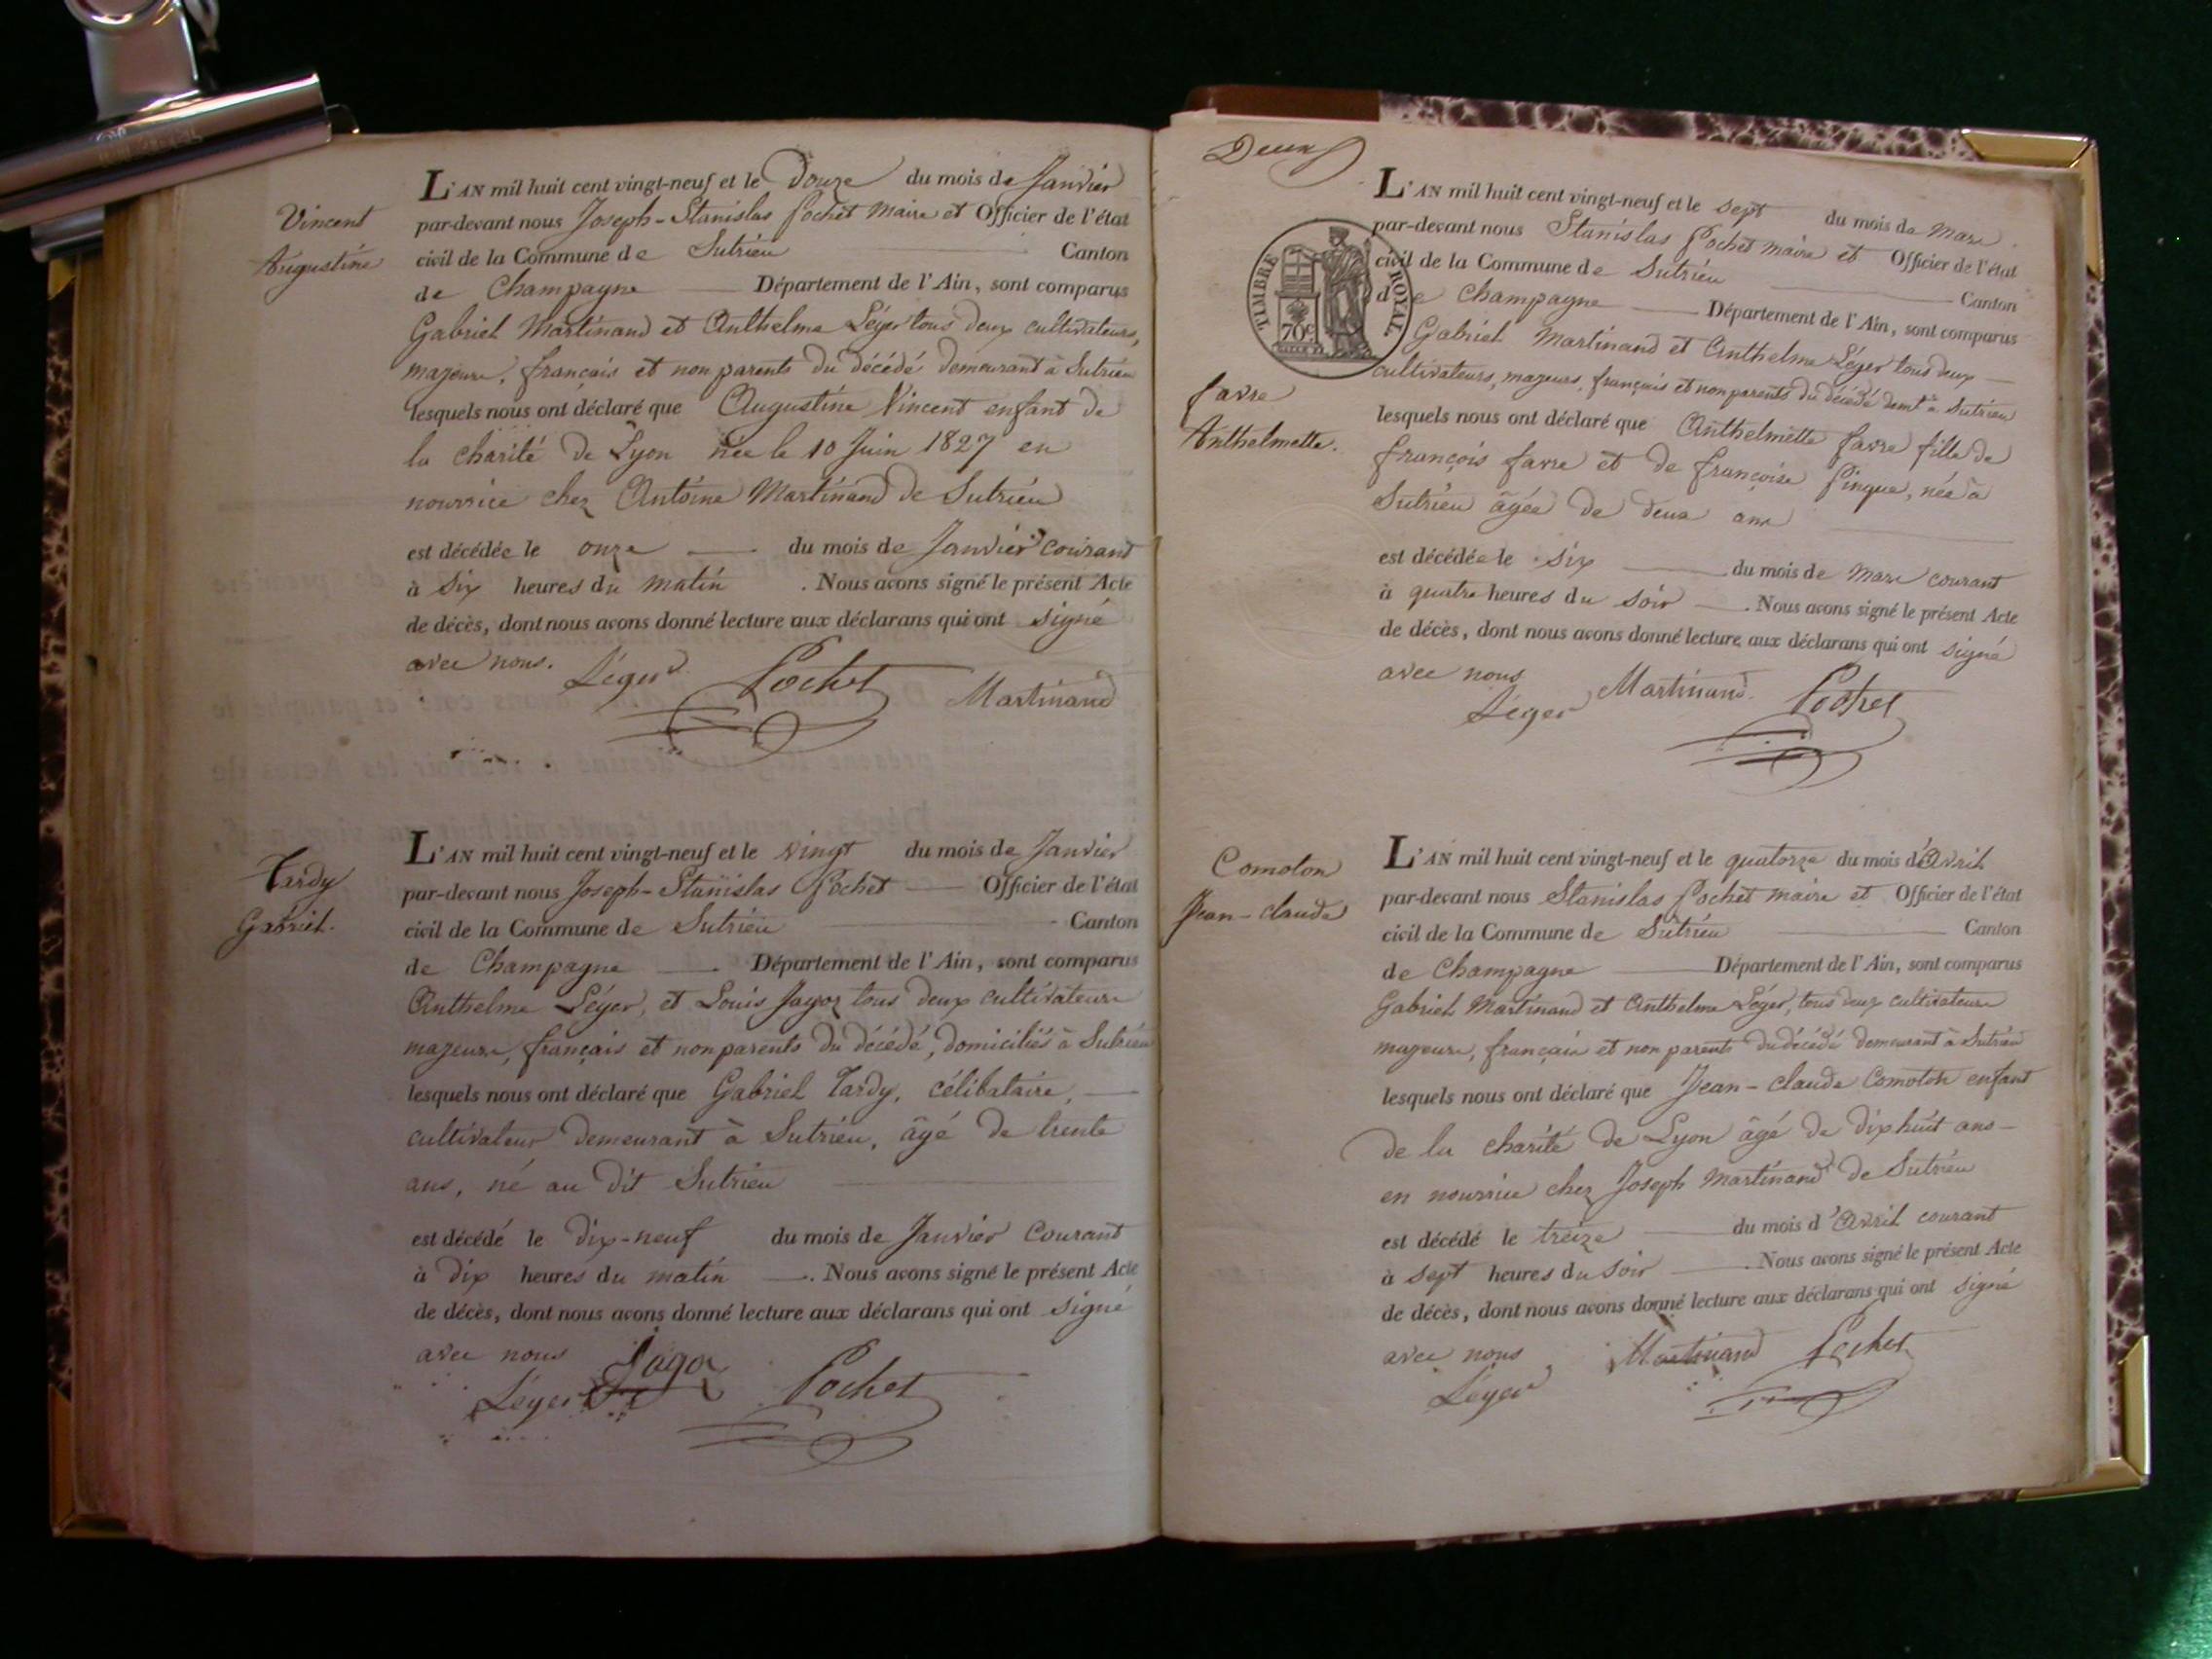 Vincent
Augustine
L'AN mil huit cent vingt-neuf et le Douze du mois de Janvier
par-devant nous Joseph-Stanislas Pochet Maire et Officier de l'état
civil de la Commune de Sutrieu Canton
de Champagne Département de l'Ain, sont comparus
Gabriel Martinand et Anthelme Léger tous deux cultivateurs,
majeurs, français et non parents du décédé demeurant à Sutrieu
lesquels nous ont déclaré que Augustine Vincent enfant de
la charité de Lyon née le 10 Juin 1827 en
nourrice chez Antoine Martinand de Sutrieu
est décédée le onze du mois de Janvier courant
à six heures du matin . Nous avons signé le présent Acte
de décès, dont nous avons donné lecture aux déclarans qui ont signé
avec nous.
Léger Pochet Martinand
Tardy
Gabriel.
L'AN mil huit cent vingt-neuf et le vingt du mois de Janvier
par-devant nous Joseph-Stanislas Pochet Officier de l'état
civil de la Commune de Sutrieu Canton
de Champagne Département de l'Ain, sont comparus
Anthelme Léger, et Louis Jagoz tous deux cultivateurs
majeurs, français et non parents du décédé, domiciliés à Sutrieu
lesquels nous ont déclaré que Gabriel Tardy, célibataire,
cultivateur demeurant à Sutrieu, âgé de trente
ans, né au dit Sutrieu
est décédé le dix-neuf du mois de Janvier courant
à dix heures du matin . Nous avons signé le présent Acte
de décès, dont nous avons donné lecture aux déclarans qui ont signé
avec nous
Léger Pochet
Deux
TIMBRE ROYAL
70 c
favre
Anthelmette.
L'AN mil huit cent vingt-neuf et le sept du mois de Mars
par-devant nous Stanislas Pochet maire et Officier de l'état
civil de la Commune de Sutrieu Canton
de Champagne Département de l'Ain, sont comparus
Gabriel Martinand et Anthelme Léger tous deux
cultivateurs, majeurs, français et non parents du décédé demt à Sutrieu
lesquels nous ont déclaré que Anthelmette favre fille de
françois favre et de françoise pingue, née à
Sutrieu âgée de deux ans
est décédée le six du mois de Mars courant
à quatre heures du soir . Nous avons signé le présent Acte
de décès, dont nous avons donné lecture aux déclarans qui ont signé
avec nous
Léger Martinand Pochet
Comoton
Jean-claude
L'AN mil huit cent vingt-neuf et le quatorze du mois d'Avril
par-devant nous Stanislas Pochet maire et Officier de l'état
civil de la Commune de Sutrieu Canton
de Champagne Département de l'Ain, sont comparus
Gabriel Martinand et Anthelme Léger, tous deux cultivateurs
majeurs, français et non parents du décédé demeurant à Sutrieu
lesquels nous ont déclaré que Jean-claude Comoton enfant
de la charité de Lyon âgé de dix huit ans
en nourrice chez Joseph Martinand de Sutrieu
est décédé le treize du mois d'Avril courant
à sept heures du soir . Nous avons signé le présent Acte
de décès, dont nous avons donné lecture aux déclarans qui ont signé
avec nous
Léger Martinand Pochet